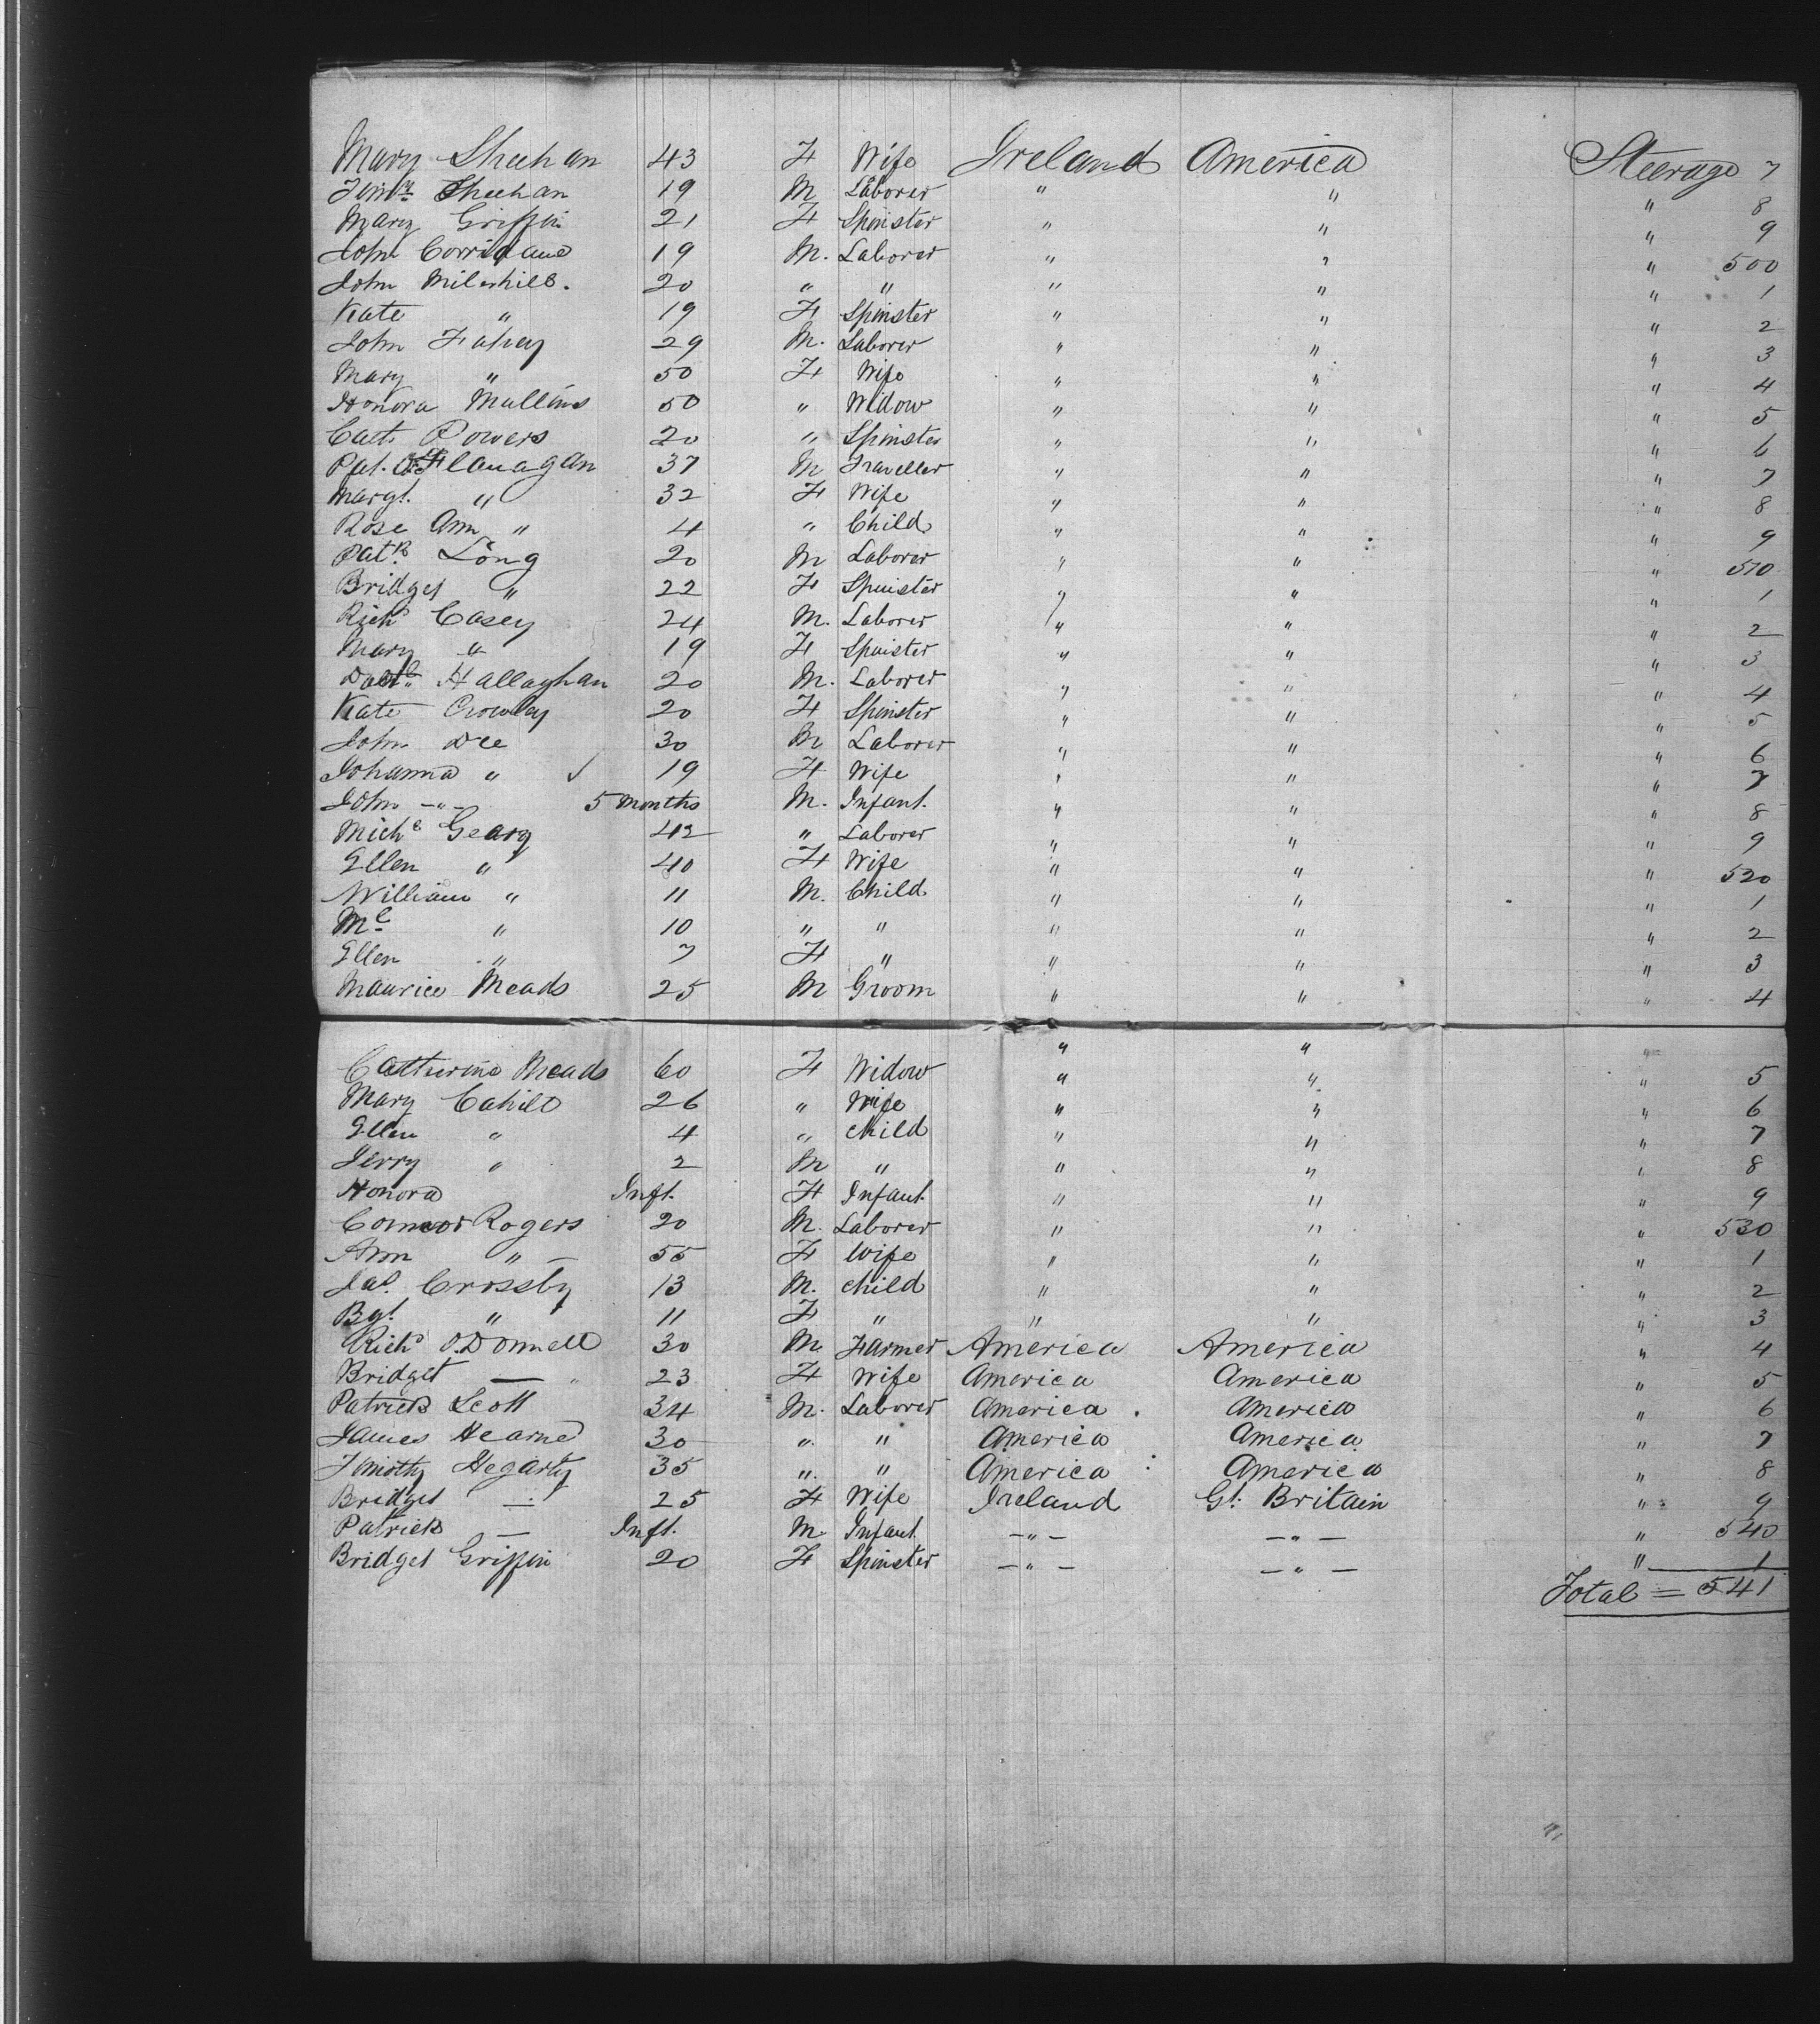 Mary Sheehan 43 F Wife Ireland America Steerage 7
Timy Sheehan 19 M Laborer " " " 8
Mary Griffin 21 F Spinster " " " 9
John Corridane 19 M. Laborer " " " 500
John 20 " " " " " 1
Kate " 19 F Spinster " " " 2
John Fahey 29 M. Laborer " " " 3
Mary " 50 F Wife " " " 4
Honora Mullins 50 " Widow " " " 5
Cath Powers 20 " Spinster " " " 6
Pat. O'Flanagan 37 M Traveller " " " 7
Margt. " 32 F Wife " " " 8
Rose Ann " 4 " Child " " " 9
Patk. Long 20 M Laborer " " " 510
Bridget " 22 F Spinster " " " 1
Richd Casey 24 M. Laborer " " " 2
Mary " 19 F Spinster " " " 3
Hallaghan 20 M. Laborer " " " 4
Kate Crowley 20 F Spinster " " " 5
John Dee 30 M Laborer " " " 6
Johanna " ✓ 19 F Wife " " " 7
John -"- 5 months M. Infant. " " " 8
Michl Geary 42 " Laborer " " " 9
Ellen " 40 F Wife " " " 520
William " 11 M. Child " " " 1
Ml " 10 " " " " " 2
Ellen " 7 F " " " " 3
Maurice Meads 25 M Groom " " " 4
Catherine Meads 60 F Widow " " " 5
Mary Cahill 26 " Wife " " " 6
Ellen " 4 " child " " " 7
Jerry " 2 M " " " " 8
Honora Inft. F Infant " " " 9
Connor Rogers 20 M. Laborer " " " 530
Ann " 55 F Wife " " " 1
Jas. Crossby 13 M. child " " " 2
Bgt. " 11 F " " " " 3
Richd O.Donnell 30 M Farmer America America " 4
Bridget — " 23 F Wife America America " 5
Patrick Scott 34 M. Laborer America America " 6
James Hearne 30 " " America America " 7
Timothy Hegarty 35 " " America America " 8
Bridget — 25 F Wife Ireland Gt. Britain " 9
Patrick — Inft. M. Infant -"- -"- " 540
Bridget Griffin 20 F Spinster -"- -"- " 1
Total = 541